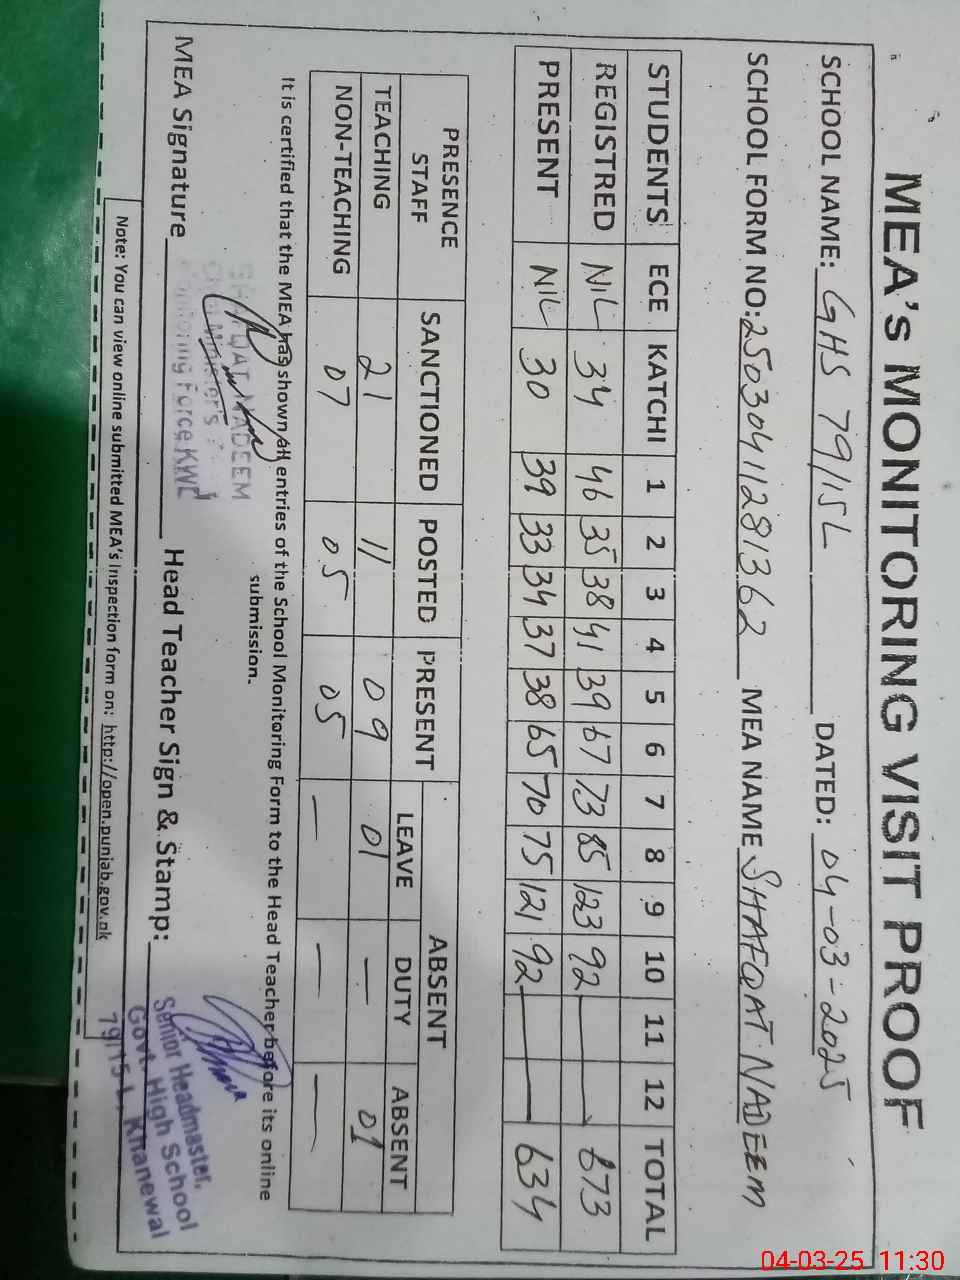 MEA's MONITORING VISIT PROOF
SCHOOL NAME: GHS 79/15L DATED: 04-03-2025
SCHOOL FORM NO: 25030411281362 MEA NAME SHAFQAT NADEEM
STUDENTS ECE KATCHI 1 2 3 4 5 6 7 8 9 10 11 12 TOTAL
REGISTRED NIL 34 46 35 38 41 39 67 73 85 123 92 — 673
PRESENT NIL 30 39 33 34 37 38 65 70 75 121 92 — 634
PRESENCE STAFF SANCTIONED POSTED PRESENT ABSENT
LEAVE DUTY ABSENT
TEACHING 21 11 09 01 — 01
NON-TEACHING 07 05 05 — — —
It is certified that the MEA has shown all entries of the School Monitoring Form to the Head Teacher before its online
submission.
SHAFQAT NADEEM
Chief Minister's
Monitoring Force KWL
MEA Signature Head Teacher Sign & Stamp:
Senior Headmaster,
Govt. High School
79/15-L Khanewal
Note: You can view online submitted MEA's inspection form on: http://open.punjab.gov.pk
04-03-25 11:30